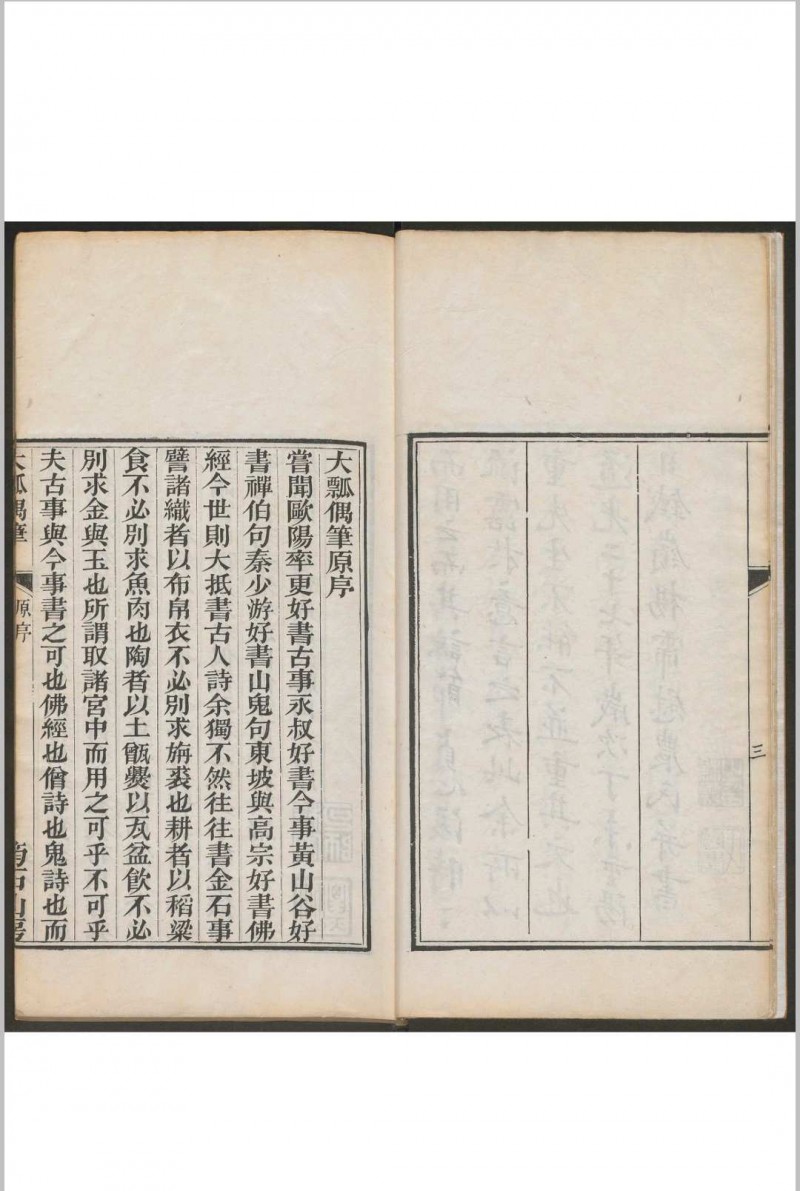 三
大瓢偶筆原序
嘗聞歐陽率更好書古事永叔好書今事黃山谷好
書禪伯句秦少游好書山鬼句東坡與高宗好書佛
經今世則大抵書古人詩余獨不然往往書金石事
譬諸織者以布帛衣不必別求旃裘也耕者以稻粱
食不必別求魚肉也陶者以土甑爨以瓦盆飲不必
別求金與玉也所謂取諸宮中而用之可乎不可乎
夫古事與今事書之可也佛經也僧詩也鬼詩也而
大瓢偶筆
原序